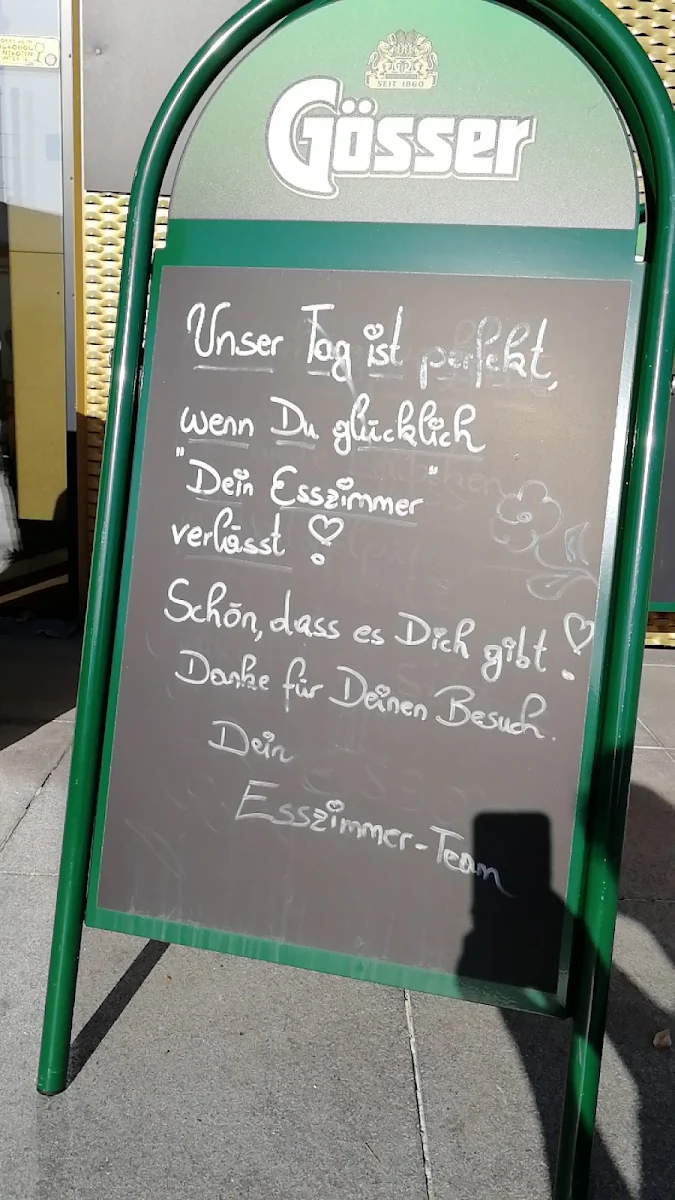 SEIT 1860
Gösser
Unser Tag ist perfekt,
wenn Du glücklich
"Dein Esszimmer"
verlässt !
Schön, dass es Dich gibt !
Danke für Deinen Besuch.
Dein
Esszimmer-Team